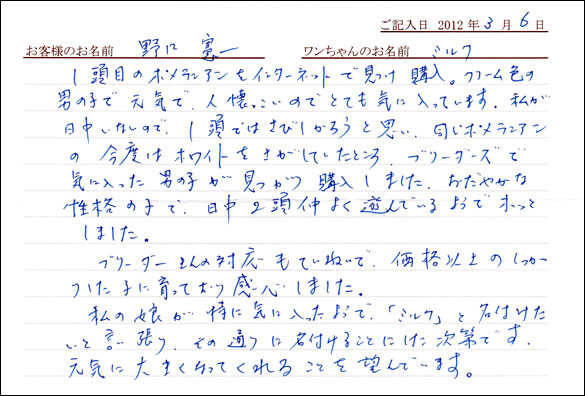 ご記入日 2012年3月6日
お客様のお名前 野口 憲一 ワンちゃんのお名前 ミルク
1頭目のポメラニアンをインターネットで見つけ購入。クリーム色の
男の子で元気で、人懐っこいのでとても気に入っています。私が
日中いないので、1頭ではさびしかろうと思い、同じポメラニアン
の今度はホワイトをさがしていたところ、ブリーダーズで
気に入った男の子が見つかり購入しました。おだやかな
性格の子で、日中2頭仲よく遊んでいるようでホッと
しました。
ブリーダーさんの対応もていねいで、価格以上のしっか
りした子に育っており感心しました。
私の娘が特に気に入ったようで、「ミルク」と名付けた
いと言い張り、その通りに名付けることにした次第です。
元気に大きくなってくれることを望んでいます。